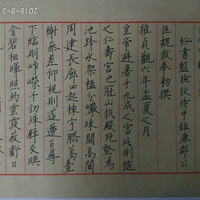 秘書監檢校侍中鉅鹿郡公
臣魏徵奉勑撰
維貞觀六年孟夏之月
皇帝避暑乎九成之宮此則隨
之仁壽宮也冠山抗殿絕壑為
池跨水架楹分巖竦闕高閣
周建長廊四起棟宇膠葛臺
榭參差仰視則迢遰百尋
下臨則崢嶸千仞珠璧交暎
金碧相暉照灼雲霞蔽虧日